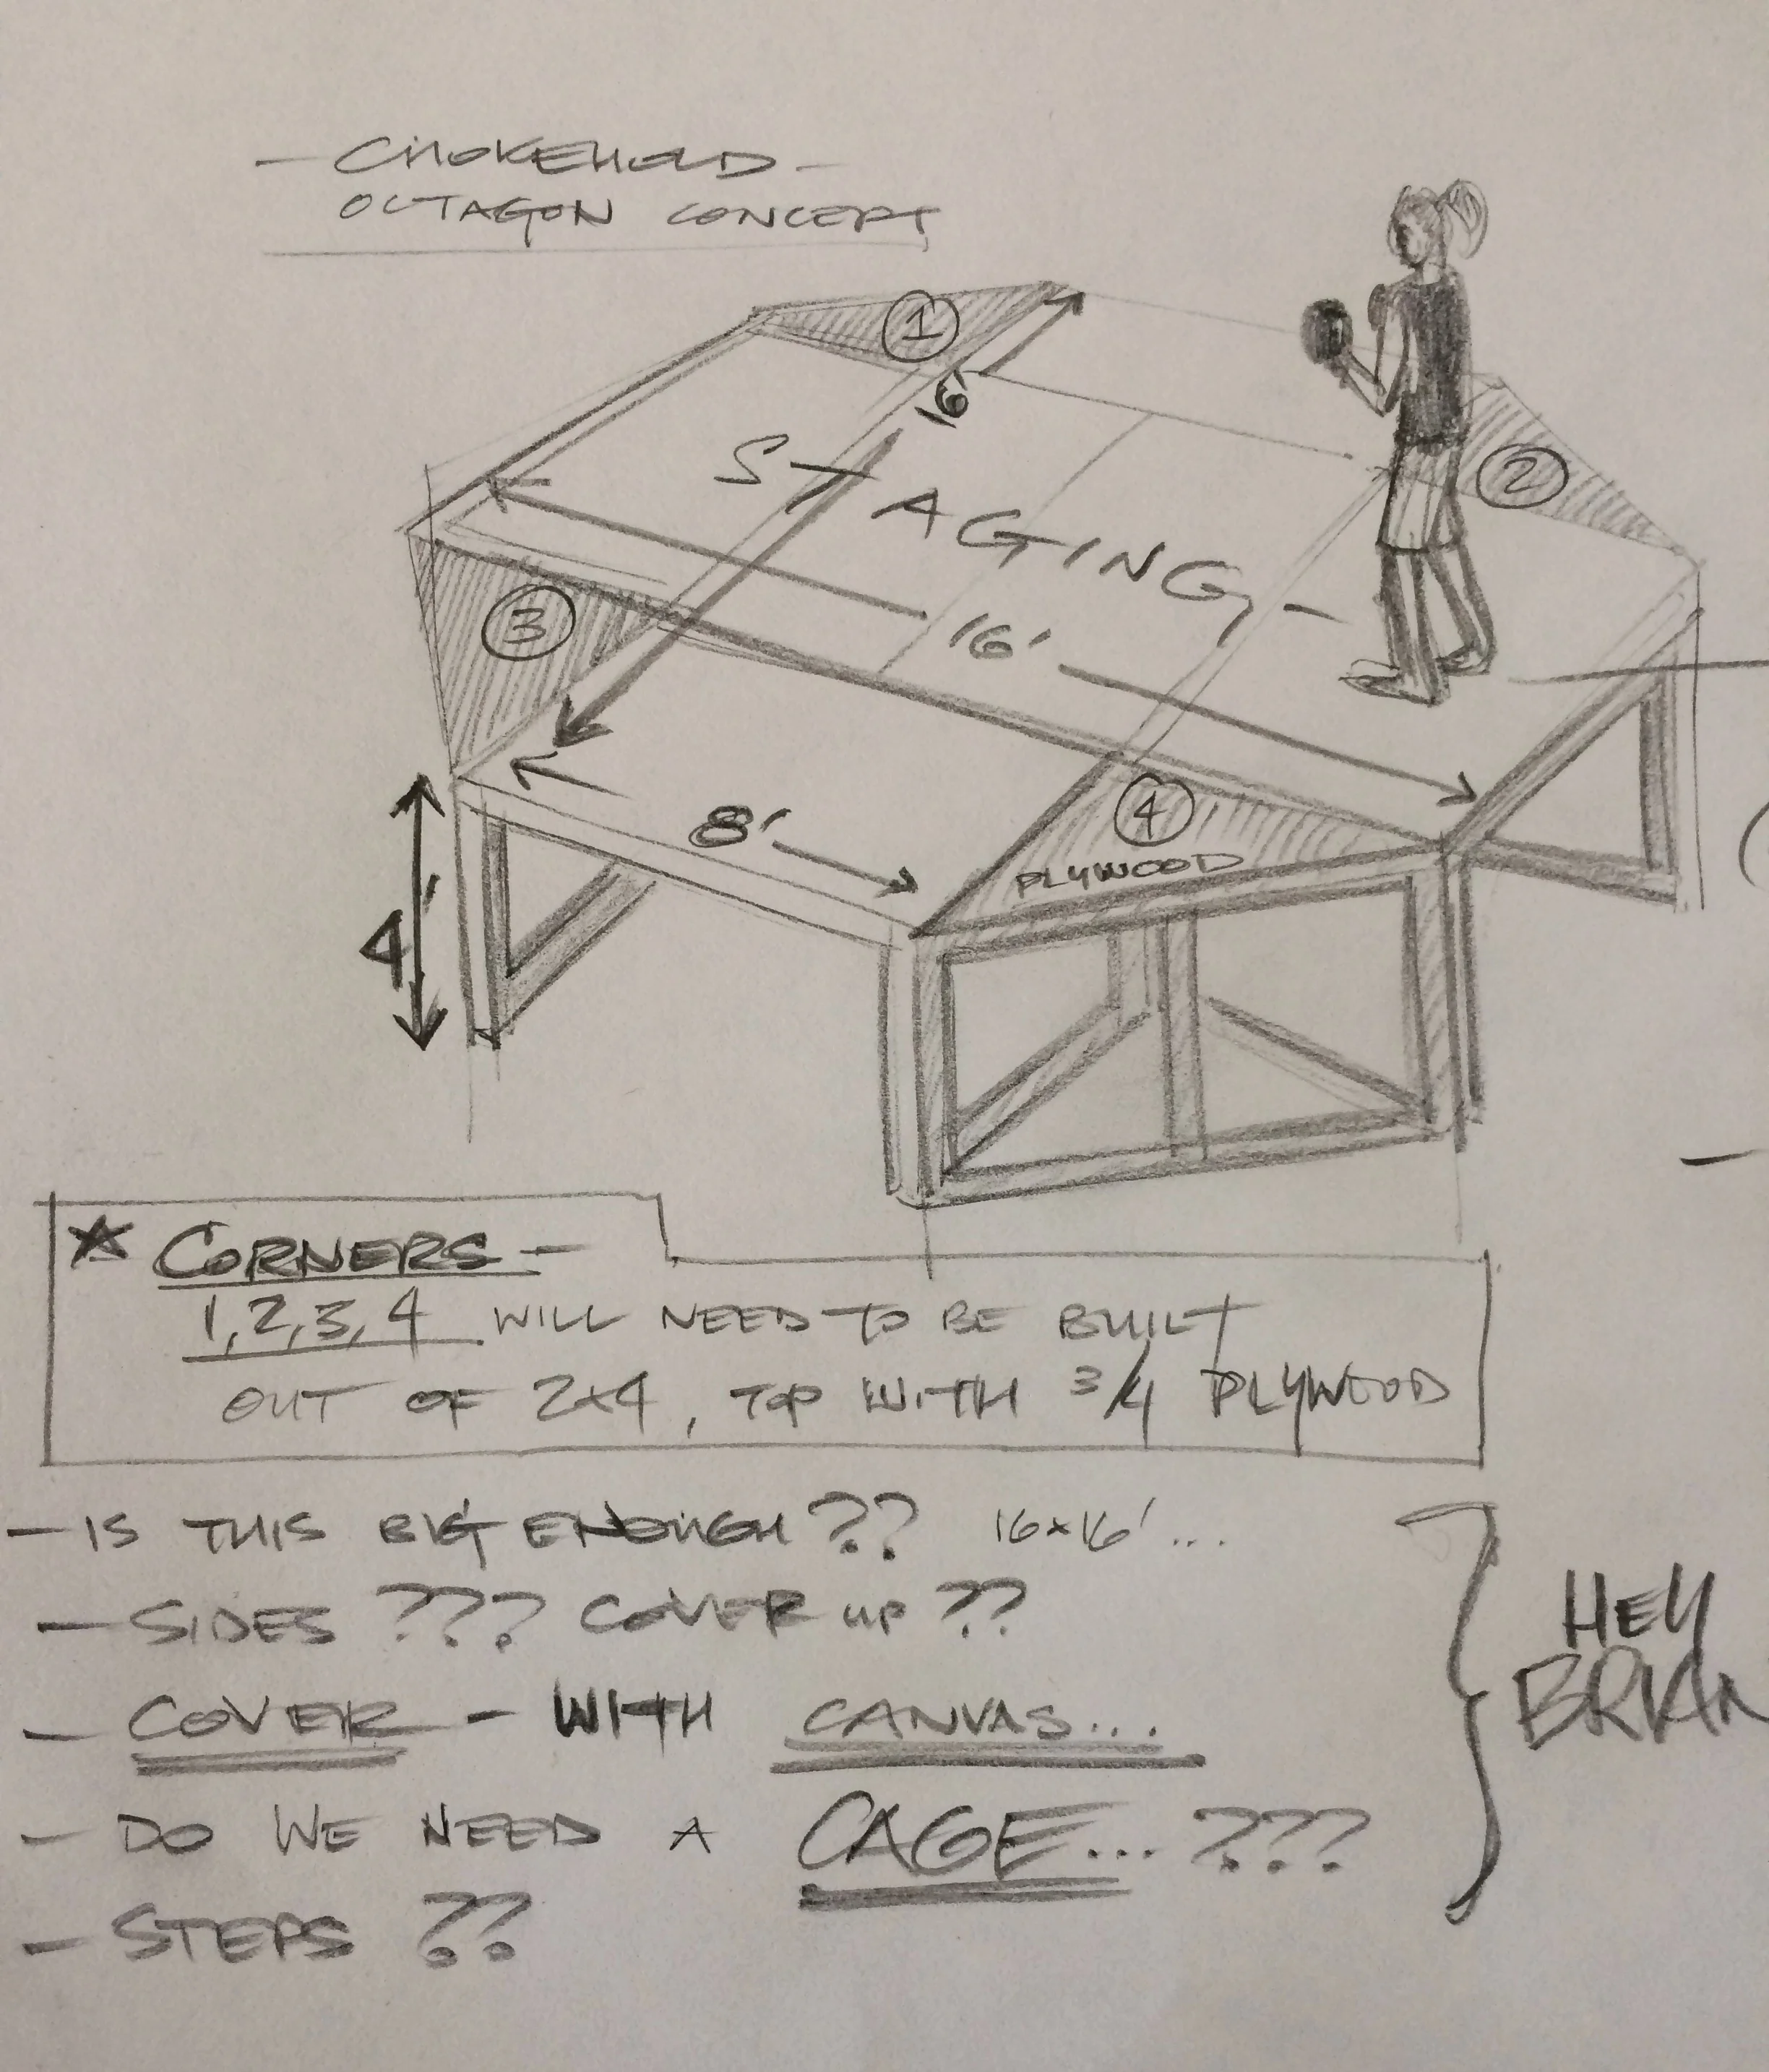 - CHOKEHOLD -
OCTAGON CONCEPT
1
2
16'
STAGING -
3
16'
4
PLYWOOD
8'
4'
★ CORNERS -
1,2,3,4 WILL NEED TO BE BUILT
OUT OF 2x4, TOP WITH 3/4 PLYWOOD
- IS THIS BIG ENOUGH ?? 16x16' ...
- SIDES ??? COVER UP ??
- COVER - WITH CANVAS...
- DO WE NEED A CAGE... ???
- STEPS ??
HEY
BRIAN